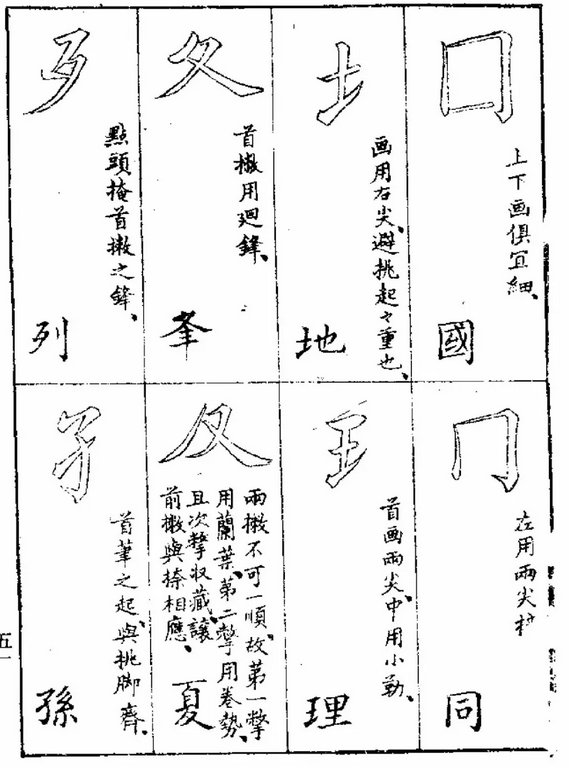 冂
上下画俱宜細、
國
土
画用右尖、避挑起々重也、
地
夂
首撇用廻鋒、
峯
歹
點頭掩首撇之鋒、
列
冂
左用兩尖柱
同
王
首画兩尖、中用小勒、
理
夂
兩撇不可一順、故第一撆
用蘭葉、第二撆用卷勢、
且次撆收藏、讓
前撇與捺相應、
夏
子
首筆之起、與挑脚齊、
孫
五一